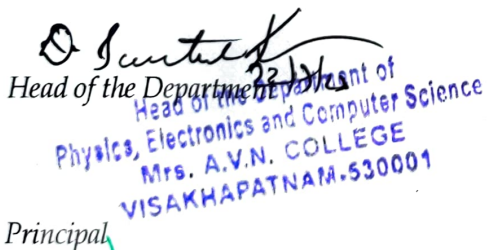 Head of the Department
Head of the Department of
Physics, Electronics and Computer Science
Mrs. A.V.N. COLLEGE
VISAKHAPATNAM-530001
Principal